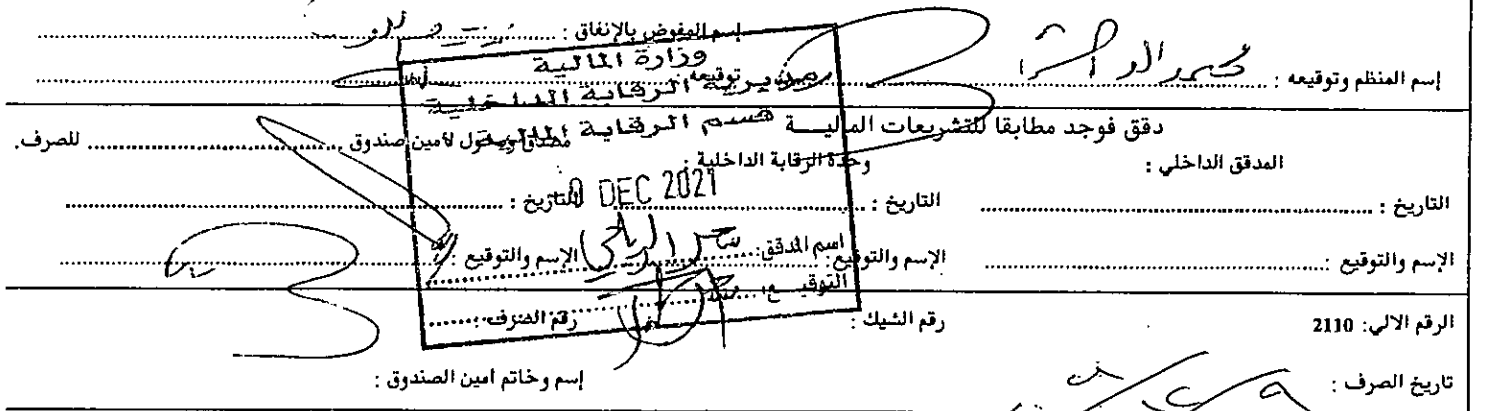 إسم المفوض بالإنفاق :
إسم المنظم وتوقيعه : محمد
توقيعه :
وزارة المالية
مديرية الرقابة الداخلية
قسم الرقابة المالية
دقق فوجد مطابقا للتشريعات الماليـــة
مصدق ويحول لأمين صندوق للصرف.
المدقق الداخلي :
وحدة الرقابة الداخلية :
التاريخ :
التاريخ :
DEC 2021
التاريخ :
الإسم والتوقيع :
الإسم والتوقيع :
اسم المدقق:
الإسم والتوقيع :
التوقيـــع:
الرقم الالي: 2110
رقم الشيك :
رقم الصرف :
تاريخ الصرف :
إسم وخاتم أمين الصندوق :